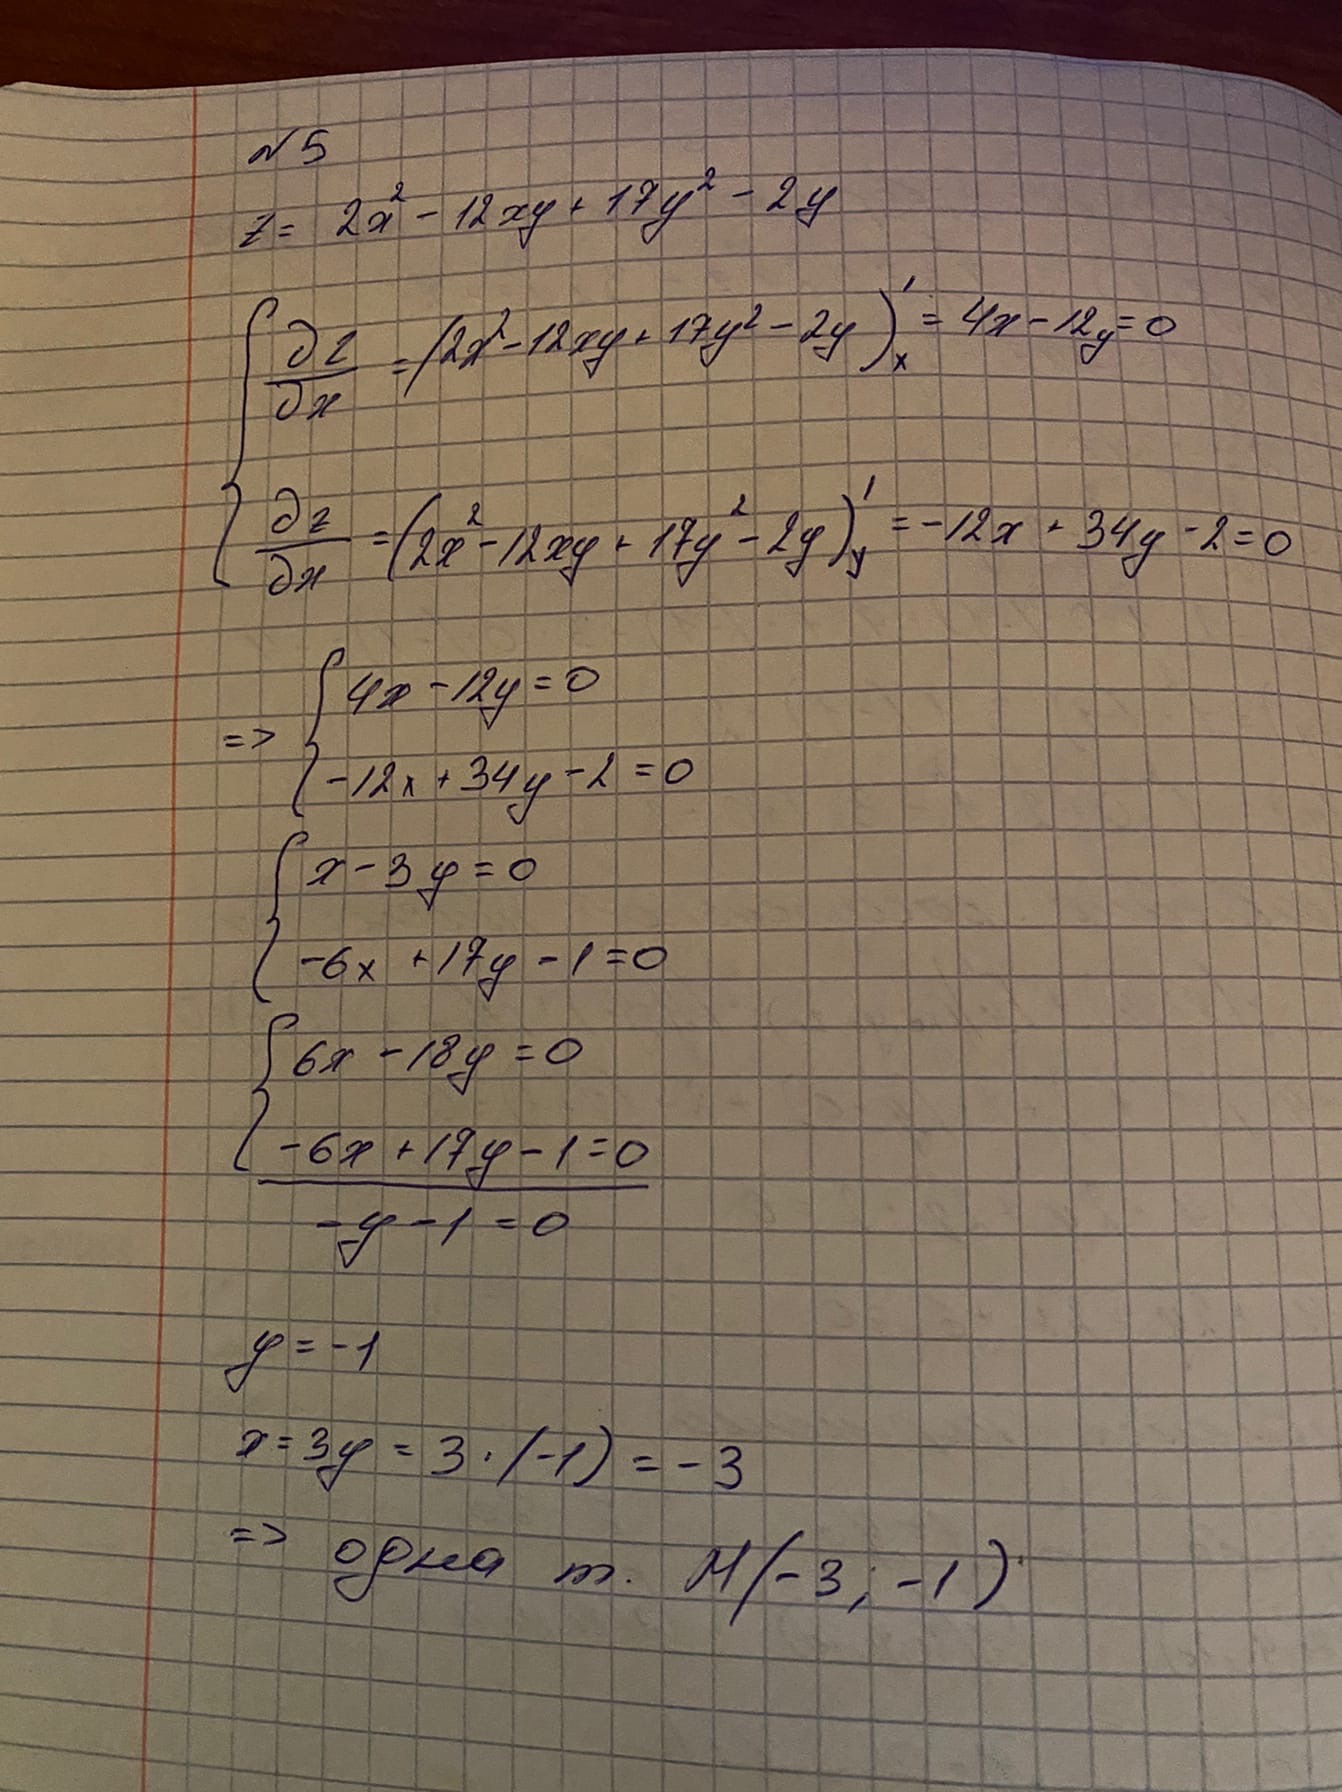 №5
z = 2x² - 12xy + 17y² - 2y
∂z/∂x = (2x² - 12xy + 17y² - 2y)'ₓ = 4x - 12y = 0
∂z/∂x = (2x² - 12xy + 17y² - 2y)'y = -12x + 34y - 2 = 0
=> { 4x - 12y = 0
-12x + 34y - 2 = 0
{ x - 3y = 0
-6x + 17y - 1 = 0
{ 6x - 18y = 0
-6x + 17y - 1 = 0
-y - 1 = 0
y = -1
x = 3y = 3 · (-1) = -3
=> одна т. М(-3; -1)